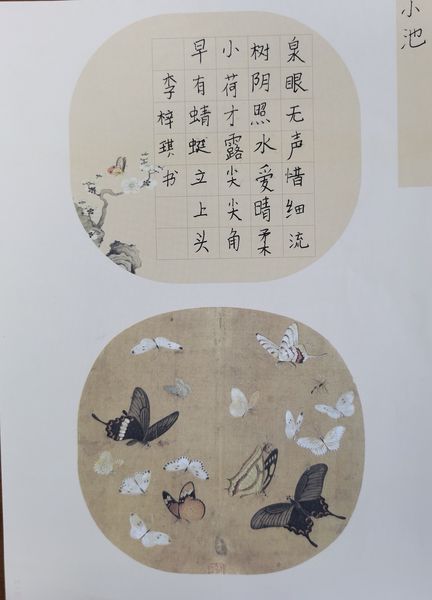 小池
泉眼无声惜细流
树阴照水爱晴柔
小荷才露尖尖角
早有蜻蜓立上头
李梓琪书